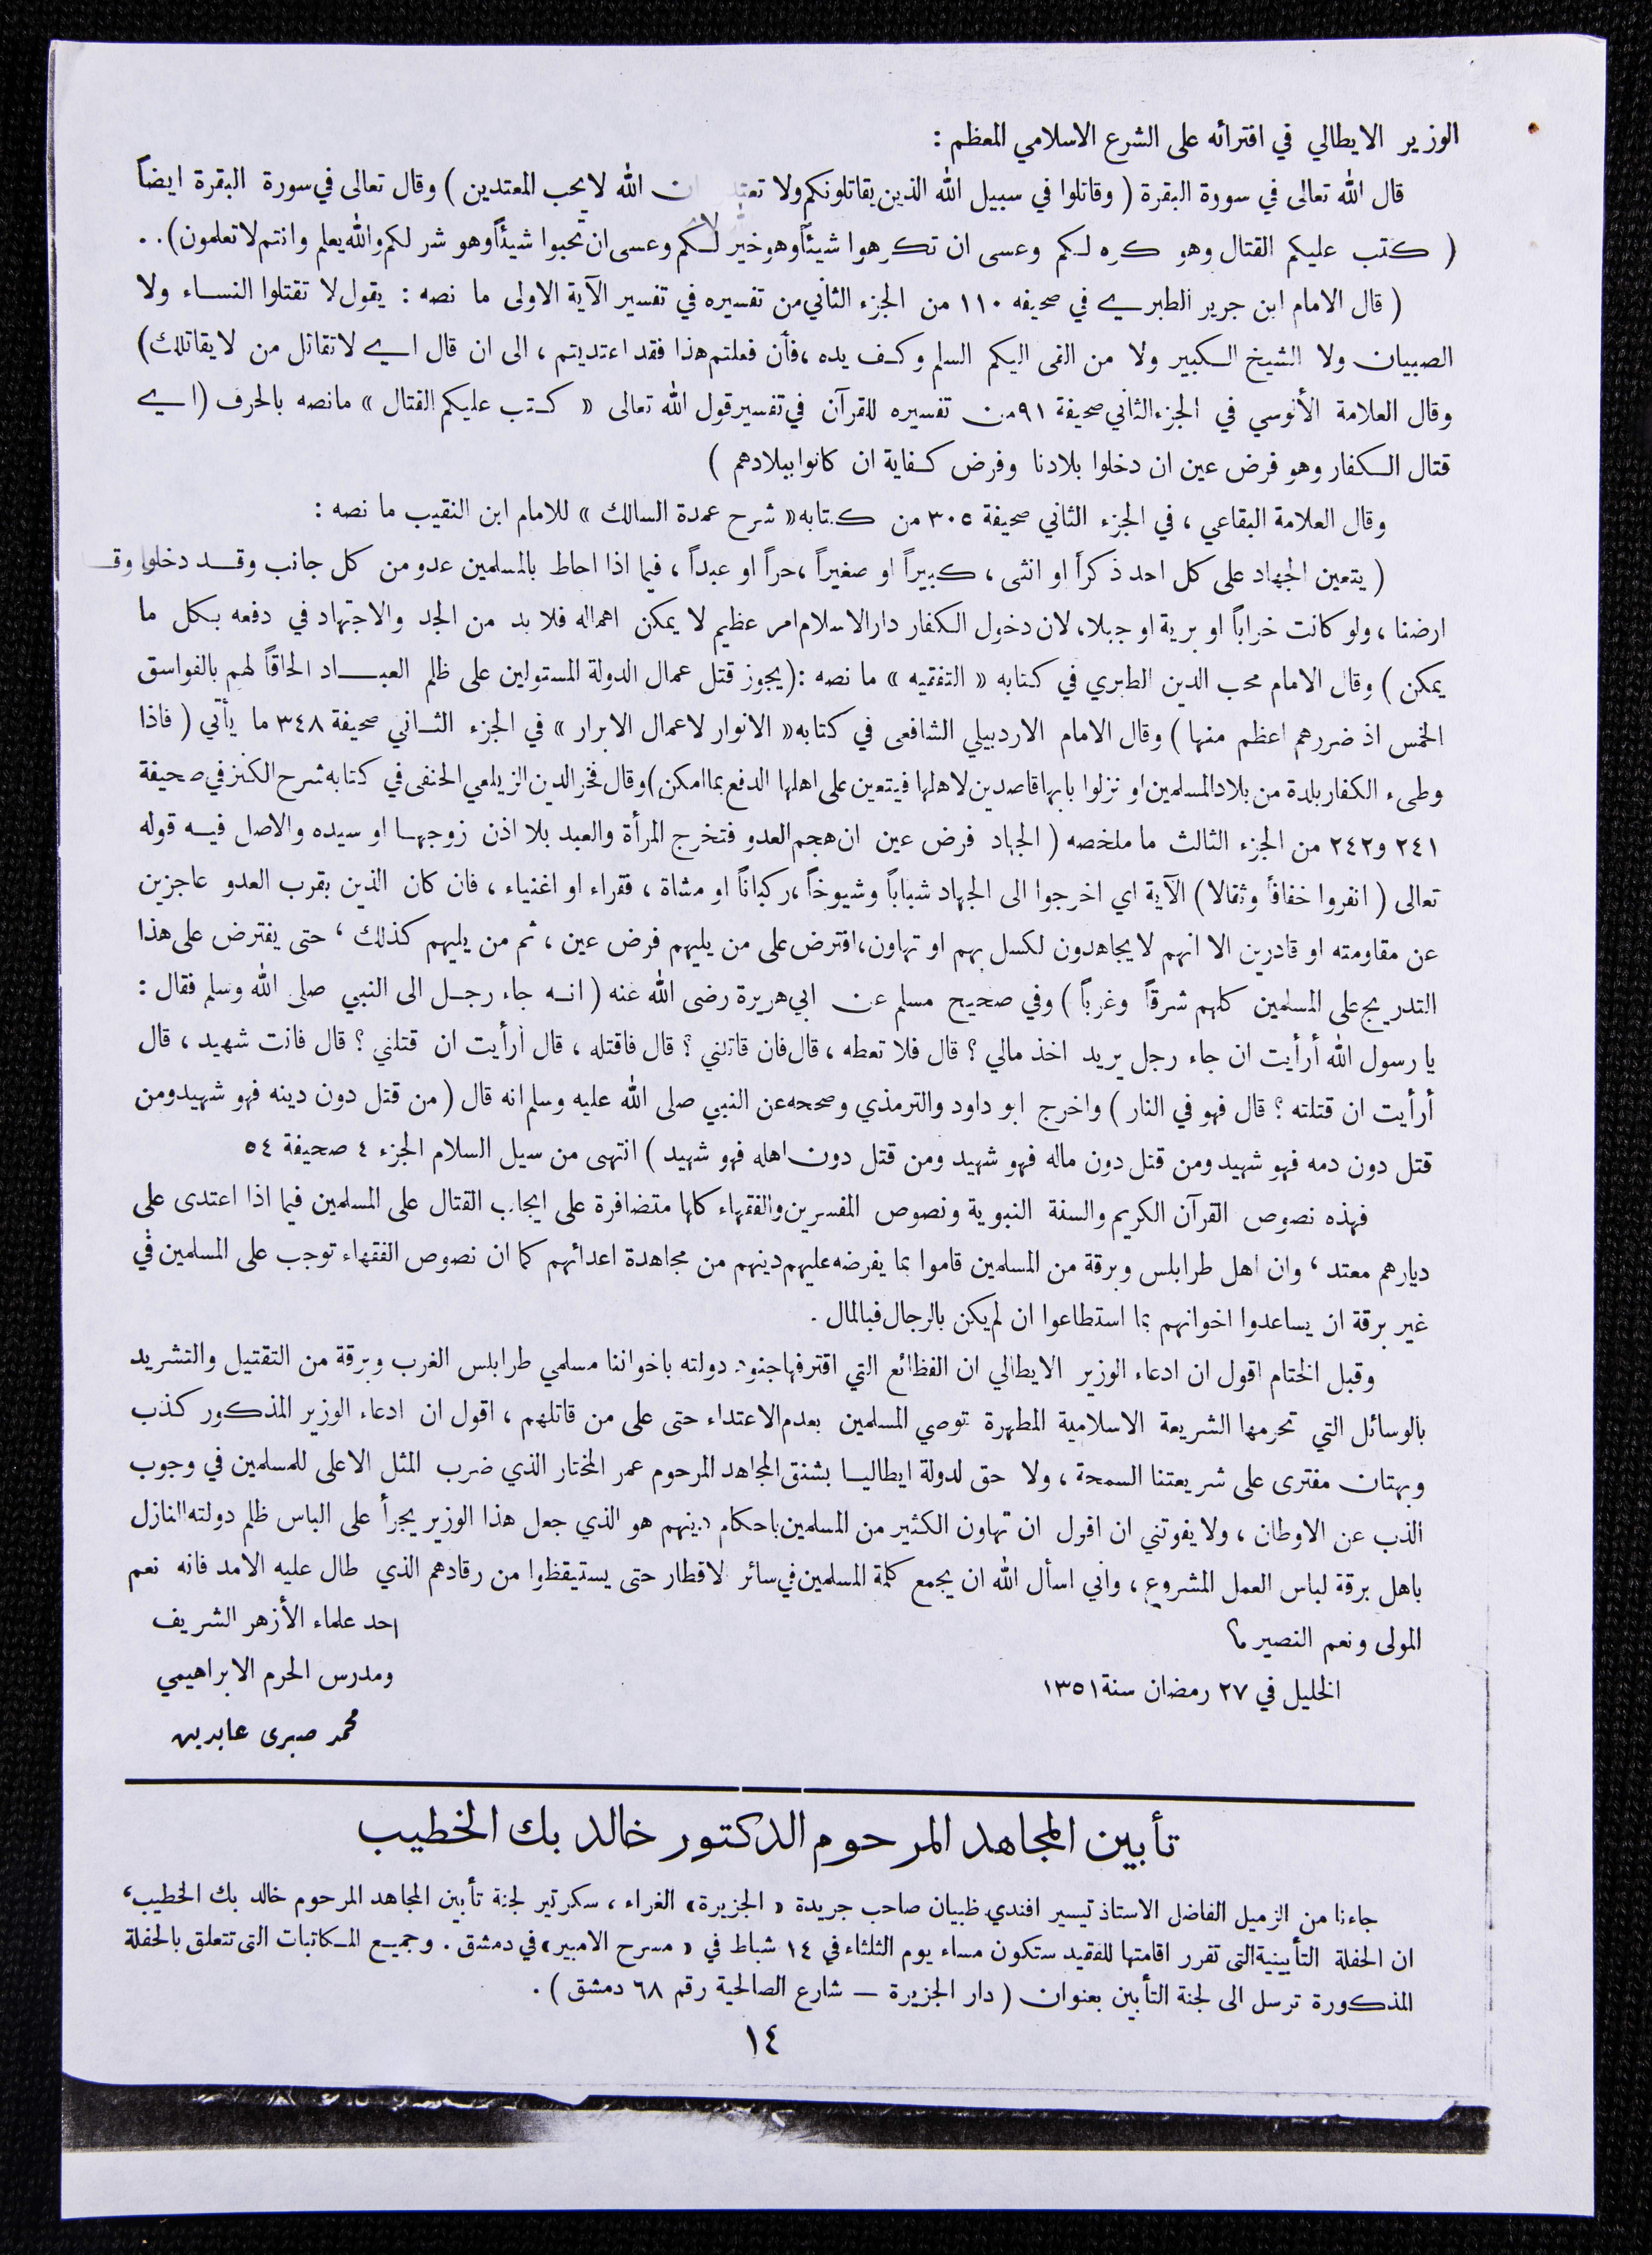 الوزير الايطالي في افترائه على الشرع الاسلامي المعظم :
قال الله تعالى في سورة البقرة ( وقاتلوا في سبيل الله الذين يقاتلونكم ولا الله لا يحب المعتدين ) وقال تعالى في سورة البقرة ايضاً
( كتب عليكم القتال وهو كره لكم وعسى ان تكرهوا شيئاً وهو خير لكم وعسى ان تحبوا شيئاً وهو شر لكم والله يعلم وانتم لا تعلمون ) . .
( قال الامام ابن جرير الطبري في صحيفه ١١٠ من الجزء الثاني من تفسيره في تفسير الآية الاولى ما نصه : يقول لا تقتلوا النساء ولا
الصبيان ولا الشيخ الكبير ولا من القى اليكم السلم وكف يده ، فأن فعلتم هذا فقد اعتديتم ، الى ان قال اي لا تقاتل من لا يقاتلك )
وقال العلامة الألوسي في الجزء الثاني صحيفة ٩١ من تفسيره للقرآن في تفسير قول الله تعالى « كتب عليكم القتال » ما نصه بالحرف ( اي
قتال الكفار وهو فرض عين ان دخلوا بلادنا وفرض كفاية ان كانوا ببلادهم )
وقال العلامة البقاعي ، في الجزء الثاني صحيفة ٣٠٥ من كتابه « شرح عمدة السالك » للامام ابن النقيب ما نصه :
( يتعين الجهاد على كل احد ذكراً او انثى ، كبيراً او صغيراً ، حراً او عبداً ، فيما اذا احاط بالمسلمين عدو من كل جانب وقد دخلوا
ارضنا ، ولو كانت خراباً او برية او جبلا ، لان دخول الكفار دار الاسلام امر عظيم لا يمكن اهماله فلا بد من الجد والاجتهاد في دفعه بكل ما
يمكن ) وقال الامام محب الدين الطبري في كتابه « التفقيه » ما نصه : ( يجوز قتل عمال الدولة المستولين على ظلم العباد الحاقاً لهم بالفواسق
الخمس اذ ضررهم اعظم منها ) وقال الامام الاردبيلي الشافعى في كتابه « الانوار لاعمال الابرار » في الجزء الثاني صحيفة ٣٤٨ ما يأتي ( فاذا
وطىء الكفار بلدة من بلاد المسلمين او نزلوا بابها قاصدين لاهلها فيتعين على اهلها الدفع بما امكن ) وقال فخر الدين الزيلعي الحنفى في كتابه شرح الكنز في صحيفة
٢٤١ و ٢٤٢ من الجزء الثالث ما ملخصه ( الجهاد فرض عين ان هجم العدو فتخرج المرأة والعبد بلا اذن زوجها او سيده والاصل فيه قوله
تعالى ( انفروا خفافاً وثقالا ) الآية اي اخرجوا الى الجهاد شباباً وشيوخاً ، ركباناً او مشاة ، فقراء او اغنياء ، فان كان الذين بقرب العدو عاجزين
عن مقاومته او قادرين الا انهم لا يجاهدون لكسل بهم او تهاون ، افترض على من يليهم فرض عين ، ثم من يليهم كذلك ، حتى يفترض على هذا
التدريج على المسلمين كلهم شرقاً وغرباً ) وفي صحيح مسلم عن ابي هريرة رضى الله عنه ( انه جاء رجل الى النبي صلى الله وسلم فقال :
يا رسول الله أرأيت ان جاء رجل يريد اخذ مالي ؟ قال فلا تعطه ، قال فان قاتلني ؟ قال فاقتله ، قال أرأيت ان قتلني ؟ قال فانت شهيد ، قال
أرأيت ان قتلته ؟ قال فهو في النار ) واخرج ابو داود والترمذي وصححه عن النبي صلى الله عليه وسلم انه قال ( من قتل دون دينه فهو شهيد ومن
قتل دون دمه فهو شهيد ومن قتل دون ماله فهو شهيد ومن قتل دون اهله فهو شهيد ) انتهى من سبل السلام الجزء ٤ صحيفة ٥٤
فهذه نصوص القرآن الكريم والسنة النبوية ونصوص المفسرين والفقهاء كلها متضافرة على ايجاب القتال على المسلمين فيما اذا اعتدى على
ديارهم معتد ، وان اهل طرابلس وبرقة من المسلمين قاموا بما يفرضه عليهم دينهم من مجاهدة اعدائهم كما ان نصوص الفقهاء توجب على المسلمين في
غير برقة ان يساعدوا اخوانهم بما استطاعوا ان لم يكن بالرجال فبالمال .
وقبل الختام اقول ان ادعاء الوزير الايطالي ان الفظائع التي اقترفها جنود دولته باخواننا مسلمي طرابلس الغرب وبرقة من التقتيل والتشريد
بالوسائل التي تحرمها الشريعة الاسلامية المطهرة توصي المسلمين بعدم الاعتداء حتى على من قاتلهم ، اقول ان ادعاء الوزير المذكور كذب
وبهتان مفترى على شريعتنا السمحة ، ولا حق لدولة ايطاليا بشنق المجاهد المرحوم عمر المختار الذي ضرب المثل الاعلى للمسلمين في وجوب
الذب عن الاوطان ، ولا يفوتني ان اقول ان تهاون الكثير من المسلمين باحكام دينهم هو الذي جعل هذا الوزير يجرأ على الباس ظلم دولته النازل
باهل برقة لباس العمل المشروع ، واني اسأل الله ان يجمع كلمة المسلمين في سائر الاقطار حتى يستيقظوا من رقادهم الذي طال عليه الامد فانه نعم
المولى ونعم النصير
احد علماء الأزهر الشريف
الخليل في ٢٧ رمضان سنة ١٣٥١
ومدرس الحرم الابراهيمي
محمد صبرى عابدين
تأبين المجاهد المرحوم الدكتور خالد بك الخطيب
جاءنا من الزميل الفاضل الاستاذ تيسير افندي ظبيان صاحب جريدة « الجزيرة » الغراء ، سكرتير لجنة تأبين المجاهد المرحوم خالد بك الخطيب ،
ان الحفلة التأبينية التى تقرر اقامتها للفقيد ستكون مساء يوم الثلثاء في ١٤ شباط في « مسرح الامبير » في دمشق . وجميع المكاتبات التى تتعلق بالحفلة
المذكورة ترسل الى لجنة التأبين بعنوان ( دار الجزيرة — شارع الصالحية رقم ٦٨ دمشق ) .
١٤